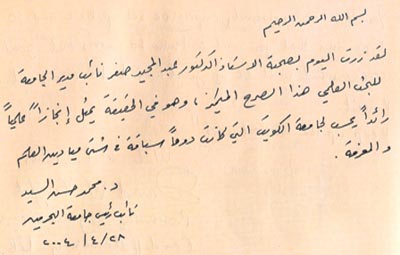 بسم الله الرحمن الرحيم
لقد زرت اليوم بصحبة الاستاذ الدكتور عبد المجيد صفر نائب مدير الجامعة
للبحث العلمي هذا الصرح المميز، وهو في الحقيقة يمثل إنجازاً علمياً
رائداً يحسب لجامعة الكويت التي كانت دوماً سباقة في شتى ميادين العلم
و المعرفة .
د. محمد حسن السيد
نائب رئيس جامعة البحرين
٢٨/٤/٢٠٠٤